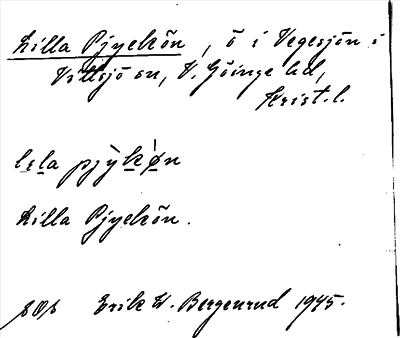 Lilla Pjyekön, ö i Vegesjön i
Vittsjö sn, V. Göinge hd,
Krist. l.
lɛla pjỳkøn
Lilla Pjyekön.
SOS Erik W. Bergenrud 1945.